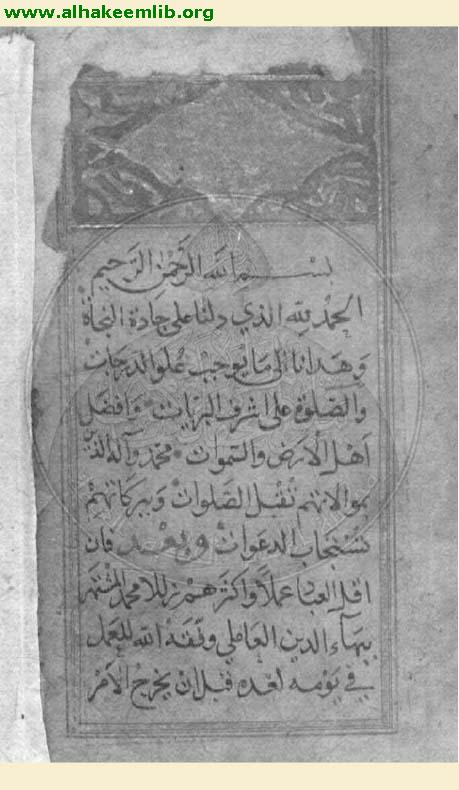 www.alhakeemlib.org
بسم الله الرحمن الرحيم
الحمد لله الذي دلنا على جادة النجاة
وهدانا الى ما يوجب علو الدرجات
والصلوة على اشرف البريات وافضل
اهل الارض والسموات محمد وآله الذين
بموالاتهم تقبل الصلوات وببركاتهم
تستجاب الدعوات وبعد فان
اقل العباد عملا واكثرهم زللا محمد المشتهر
ببهاء الدين العاملي وفقه الله للعمل
في يومه لغده قبل ان يخرج الامر